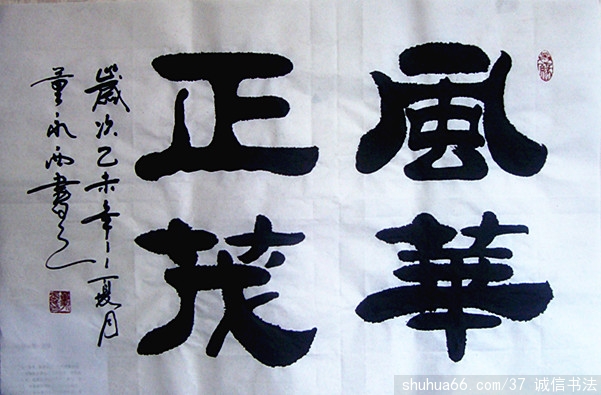 風華
正茂
歲次乙未年夏月
永書之
shuhua66.com/37 诚信书法